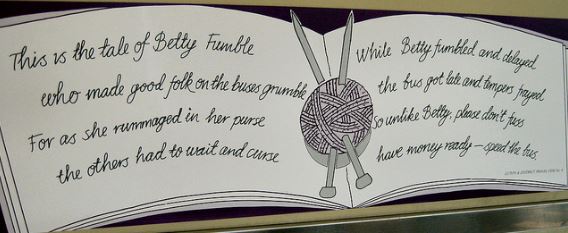 This is the tale of Betty Fumble
who made good folk on the buses grumble
For as she rummaged in her purse
the others had to wait and curse
While Betty fumbled and delayed
the bus got late and tempers frayed
So unlike Betty, please don't fuss
have money ready — speed the bus.